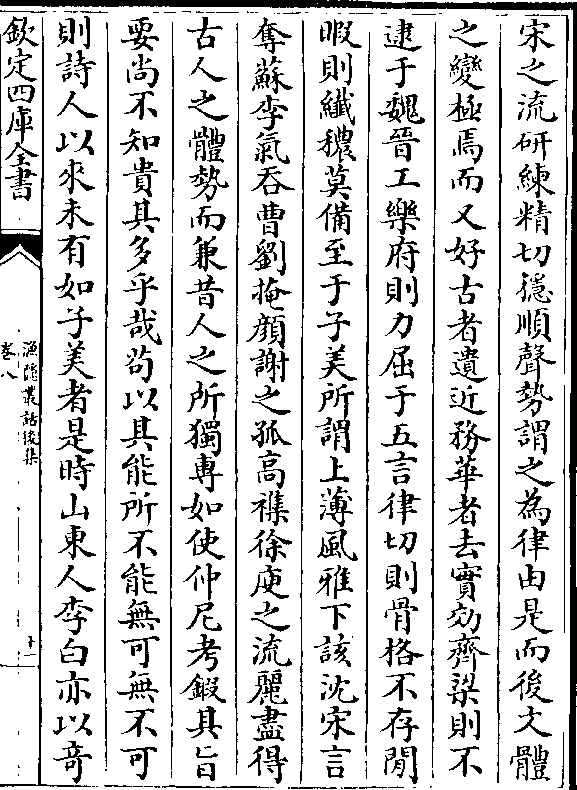 宋之流研練精切穩順聲勢謂之為律由是而後文體
之變極焉而又好古者遺近務華者去實効齊梁則不
逮于魏晉工樂府則力屈于五言律切則骨格不存閒
暇則纖穠莫備至于子美所謂上薄風雅下該沈宋言
奪蘇李氣吞曹劉掩顔謝之孤高襍徐庾之流麗盡得
古人之體勢而兼昔人之所獨專如使仲尼考鍛其旨
要尚不知貴其多乎哉茍以其能所不能無可無不可
則詩人以來未有如子美者是時山東人李白亦以竒
欽定四庫全書
漁隠叢話後集
卷八
十一